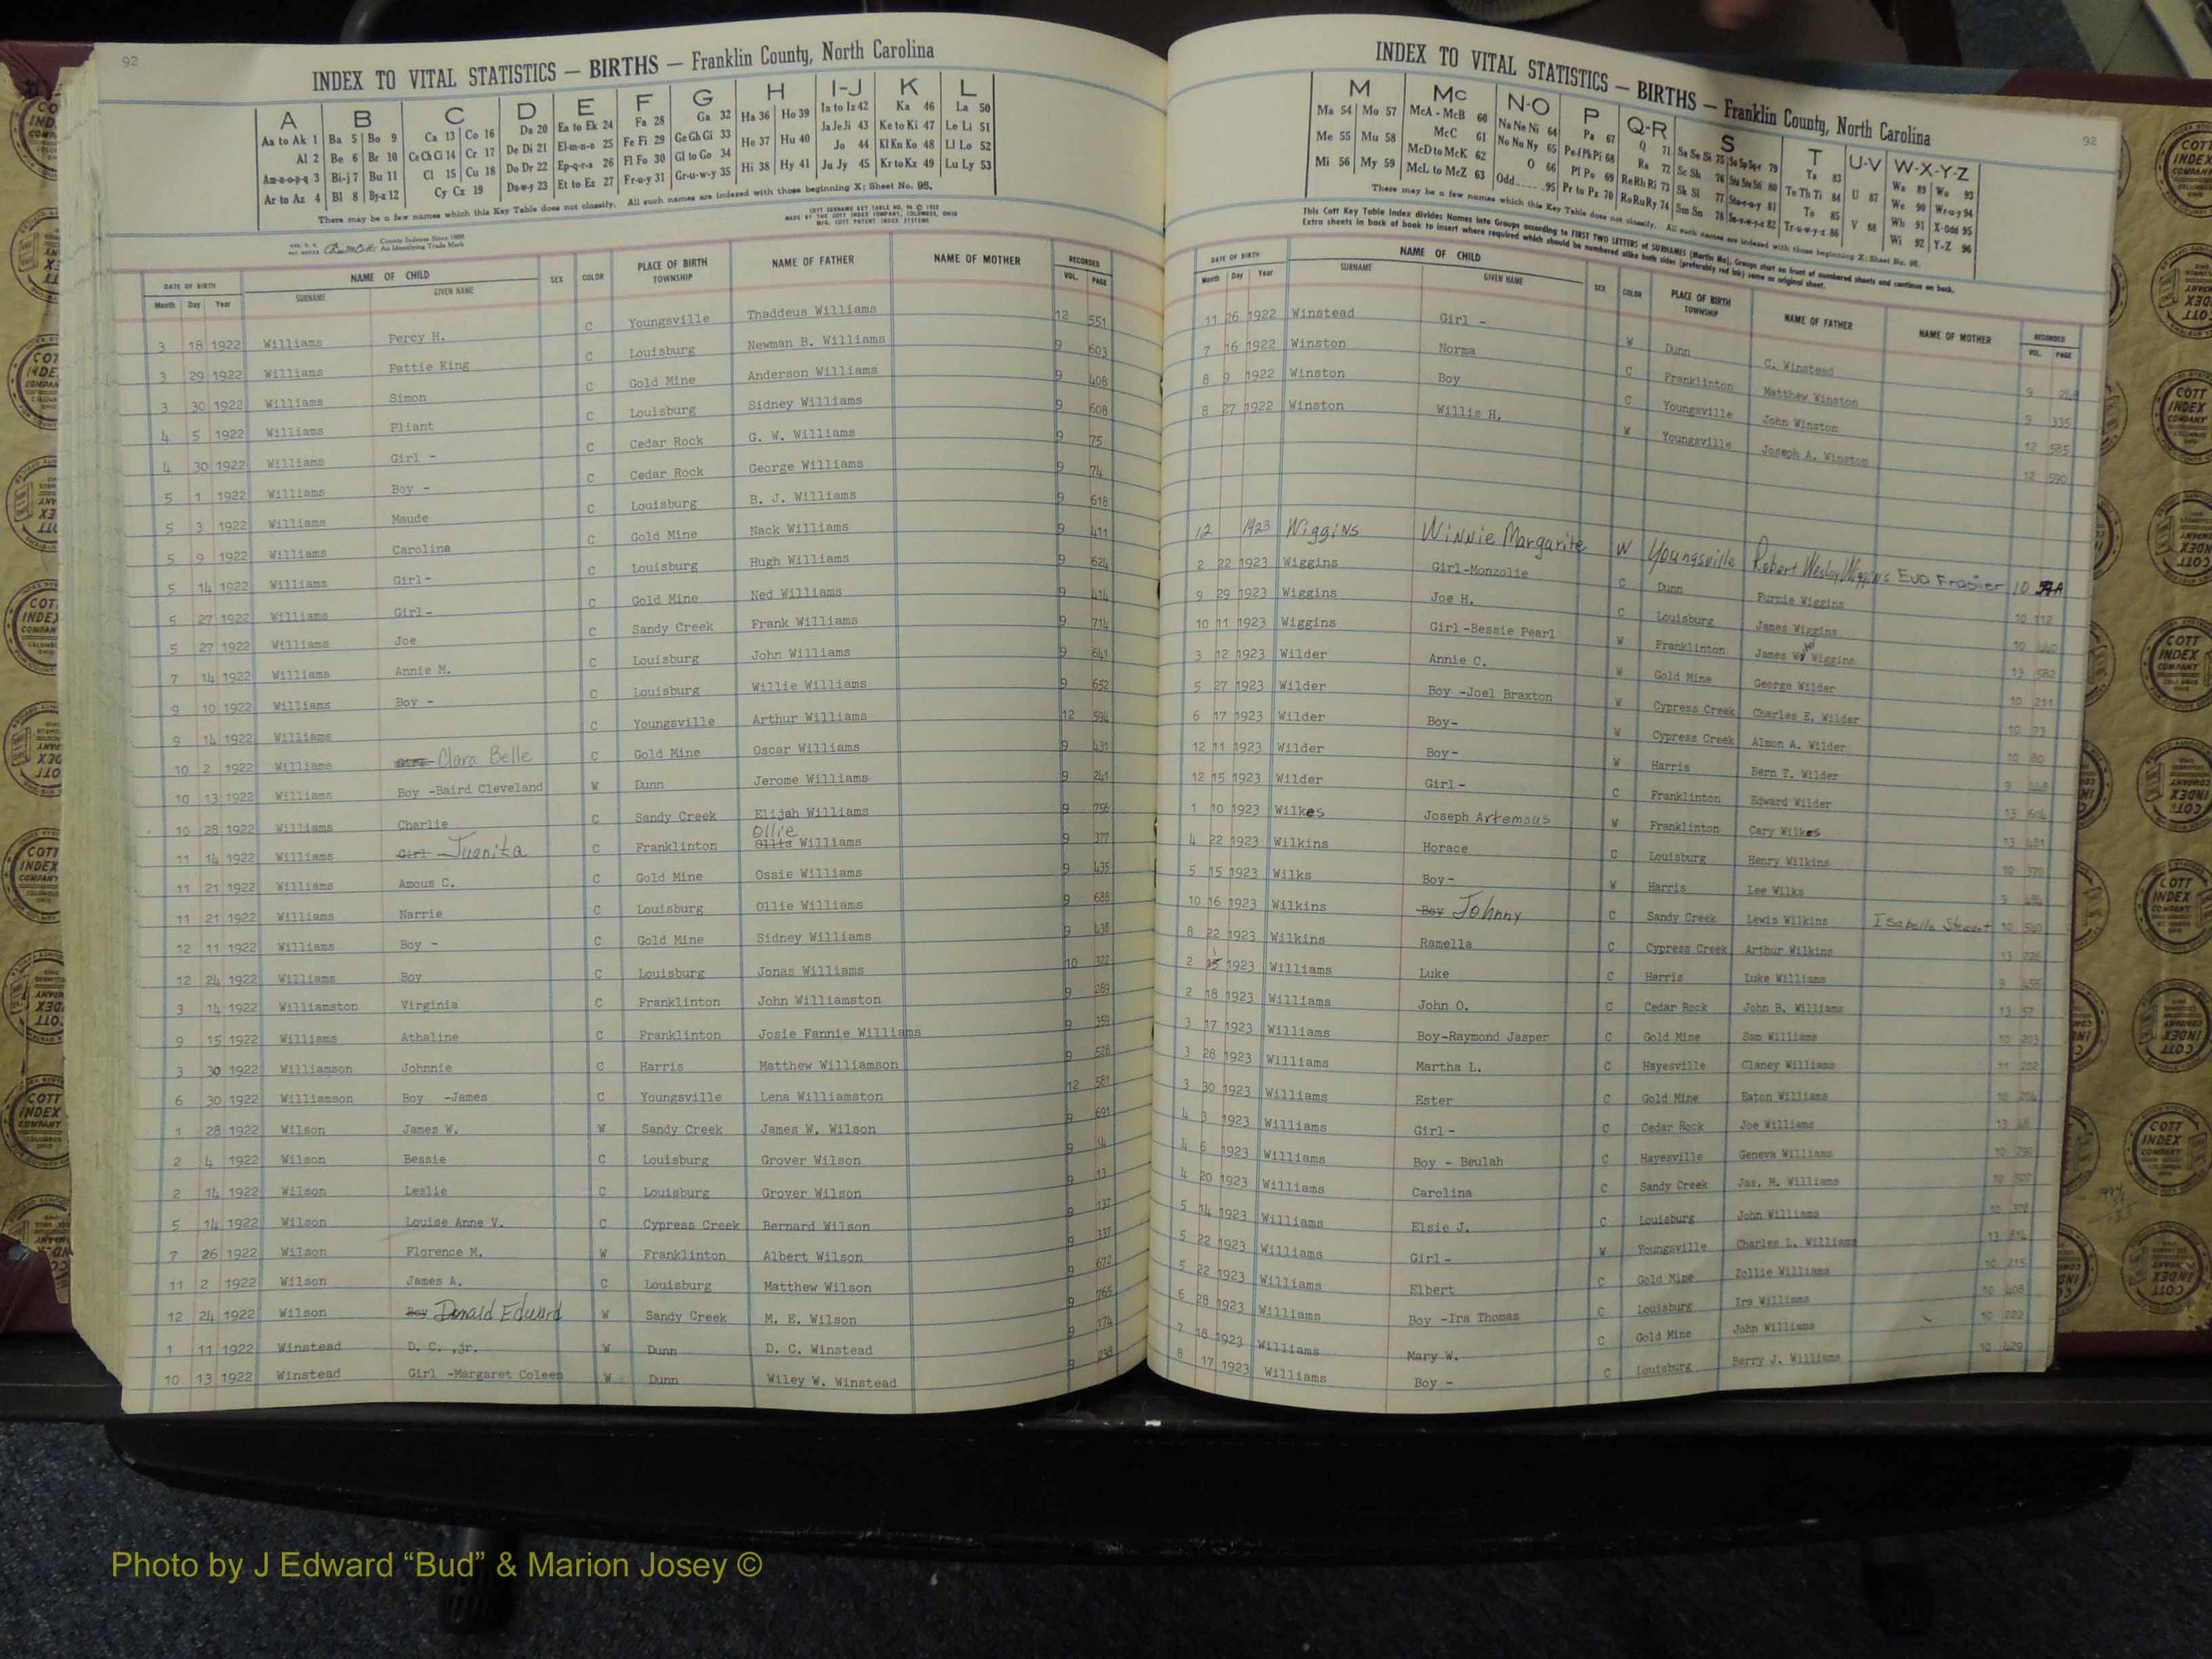 92
INDEX TO VITAL STATISTICS — BIRTHS — Franklin County, North Carolina
A B C D E F G H I-J K L
Aa to Ak 1 Ba 5 Bo 9 Ca 13 Co 16 Da 20 Ea to Ek 24 Fa 28 Ga 32 Ha 36 Ho 39 Ia to Iz 42 Ka 46 La 50
Al 2 Be 6 Br 10 Ce Ch Ci 14 Cr 17 De Di 21 El-m-n-o 25 Fe Fi 29 Ge Gh Gi 33 He 37 Hu 40 Ja Je Ji 43 Ke to Ki 47 Le Li 51
Am-n-o-p-q 3 Bi-j 7 Bu 11 Cl 15 Cu 18 Do Dr 22 Ep-q-r-s 26 Fl Fo 30 Gl to Go 34 Hi 38 Hy 41 Jo 44 Kl Kn Ko 48 Ll Lo 52
Ar to Az 4 Bl 8 By-z 12 Cy Cz 19 Du-w-y 23 Et to Ez 27 Fr-u-y 31 Gr-u-w-y 35 Ju Jy 45 Kr to Kz 49 Lu Ly 53
There may be a few names which this Key Table does not classify. All such names are indexed with those beginning X; Sheet No. 95.
County Indexes Since 1888
An Identifying Trade Mark
DATE OF BIRTH NAME OF CHILD SEX COLOR PLACE OF BIRTH TOWNSHIP NAME OF FATHER NAME OF MOTHER RECORDED
Month Day Year SURNAME GIVEN NAME VOL. PAGE
3 18 1922 Williams Percy H. C Youngsville Thaddeus Williams 12 551
3 29 1922 Williams Pattie King C Louisburg Newman B. Williams 9 603
3 30 1922 Williams Simon C Gold Mine Anderson Williams 9 408
4 5 1922 Williams Pliant C Louisburg Sidney Williams 9 608
4 30 1922 Williams Girl - C Cedar Rock G. W. Williams 9 75
5 1 1922 Williams Boy - C Cedar Rock George Williams 9 74
5 3 1922 Williams Maude C Louisburg B. J. Williams 9 618
5 9 1922 Williams Carolina C Gold Mine Nack Williams 9 411
5 14 1922 Williams Girl- C Louisburg Hugh Williams 9 624
5 27 1922 Williams Girl- C Gold Mine Ned Williams 9 414
5 27 1922 Williams Joe C Sandy Creek Frank Williams 9 714
7 14 1922 Williams Annie M. C Louisburg John Williams 9 641
9 10 1922 Williams Boy - C Louisburg Willie Williams 9 652
9 14 1922 Williams C Youngsville Arthur Williams 12 594
10 2 1922 Williams Girl- Clara Belle C Gold Mine Oscar Williams 9 431
10 13 1922 Williams Boy -Baird Cleveland W Dunn Jerome Williams 9 241
10 28 1922 Williams Charlie C Sandy Creek Elijah Williams 9 756
11 14 1922 Williams Girl- Juanita C Franklinton Ollie Williams 9 377
11 21 1922 Williams Amous C. C Gold Mine Ossie Williams 9 435
11 21 1922 Williams Narrie C Louisburg Ollie Williams 9 688
12 11 1922 Williams Boy - C Gold Mine Sidney Williams 9 438
12 24 1922 Williams Boy C Louisburg Jonas Williams 10 322
3 14 1922 Williamston Virginia C Franklinton John Williamston 9 289
9 15 1922 Williams Athaline C Franklinton Josie Fannie Williams 9 359
3 30 1922 Williamson Johnnie C Harris Matthew Williamson 9 528
6 30 1922 Williamson Boy -James C Youngsville Lena Williamston 12 581
1 28 1922 Wilson James W. W Sandy Creek James W. Wilson 9 691
2 4 1922 Wilson Bessie C Louisburg Grover Wilson 9 14
2 14 1922 Wilson Leslie C Louisburg Grover Wilson 9 13
5 14 1922 Wilson Louise Anne V. C Cypress Creek Bernard Wilson 9 137
7 26 1922 Wilson Florence M. W Franklinton Albert Wilson 9 337
11 2 1922 Wilson James A. C Louisburg Matthew Wilson 9 672
12 24 1922 Wilson Boy Donald Edward W Sandy Creek M. E. Wilson 9 765
1 11 1922 Winstead D. C. ,jr. W Dunn D. C. Winstead 9 174
10 13 1922 Winstead Girl -Margaret Coleen W Dunn Wiley W. Winstead 9 238
INDEX TO VITAL STATISTICS — BIRTHS — Franklin County, North Carolina
92
M Mc N-O P Q-R S T U-V W-X-Y-Z
Ma 54 Mo 57 McA - McB 60 Na Ne Ni 64 Pa 67 Q 71 Sa Se Si 75 79 Ta 83 U 87 Wa 89 Wo 93
Me 55 Mu 58 McC 61 No Nu Ny 65 Pe-f Ph Pi 68 Ra 72 Sc Sh 76 80 Te Th Ti 84 V 88 We 90 Wr-u-y 94
Mi 56 My 59 McD to McK 62 O 66 Pl Po 69 Re Rh Ri 73 Sk Sl 77 Sto-r-u-y 81 To 85 Wh 91 X-Odd 95
McL to McZ 63 Odd 95 Pr to Pz 70 Ro Ru Ry 74 Sm Sn 78 82 Tr-u-w-y-z 86 Wi 92 Y-Z 96
There may be a few names which this Key Table does not classify. All such names are indexed with those beginning X; Sheet No. 95.
This Cott Key Table Index divides Names into Groups according to FIRST TWO LETTERS of SURNAMES (Martin Ma). Groups start on front of numbered sheets and continue on back.
Extra sheets in back of book to insert where required which should be numbered alike both sides (preferably red ink) same as original sheet.
DATE OF BIRTH NAME OF CHILD SEX COLOR PLACE OF BIRTH TOWNSHIP NAME OF FATHER NAME OF MOTHER RECORDED
Month Day Year SURNAME GIVEN NAME VOL. PAGE
11 26 1922 Winstead Girl - W Dunn C. Winstead 9
7 16 1922 Winston Norma C Franklinton Matthew Winston 9 335
8 9 1922 Winston Boy C Youngsville John Winston 12 585
8 27 1922 Winston Willis H. W Youngsville Joseph A. Winston 12 590
12 1923 Wiggins Winnie Margarite W Youngsville Robert Wesley Wiggins Eva Frasier 10
2 22 1923 Wiggins Girl-Monzolie C Dunn Furnie Wiggins 10 112
9 29 1923 Wiggins Joe H. C Louisburg James Wiggins 10
10 11 1923 Wiggins Girl -Bessie Pearl W Franklinton James Wiggins 13 582
3 12 1923 Wilder Annie C. W Gold Mine George Wilder 10 211
5 27 1923 Wilder Boy -Joel Braxton W Cypress Creek Charles E. Wilder 10 73
6 17 1923 Wilder Boy- W Cypress Creek Almon A. Wilder 10 80
12 11 1923 Wilder Boy - W Harris Bern T. Wilder 9
12 15 1923 Wilder Girl - C Franklinton Edward Wilder 13 604
1 10 1923 Wilkes Joseph Artemous W Franklinton Cary Wilkes 13
4 22 1923 Wilkins Horace C Louisburg Henry Wilkins 10
5 15 1923 Wilks Boy- W Harris Lee Wilks 9
10 16 1923 Wilkins Boy Johnny C Sandy Creek Lewis Wilkins Isabelle Stewart 10
8 22 1923 Wilkins Ramella C Cypress Creek Arthur Wilkins 13 226
2 1923 Williams Luke C Harris Luke Williams 9
2 18 1923 Williams John O. C Cedar Rock John B. Williams 13 57
3 17 1923 Williams Boy-Raymond Jasper C Gold Mine Sam Williams 10 203
3 28 1923 Williams Martha L. C Hayesville Claney Williams 11 202
3 30 1923 Williams Ester C Gold Mine Eaton Williams 10 204
4 3 1923 Williams Girl- C Cedar Rock Joe Williams 13
4 6 1923 Williams Boy - Beulah C Hayesville Geneva Williams 10 290
4 20 1923 Williams Carolina C Sandy Creek Jas. M. Williams 10 507
5 14 1923 Williams Elsie J. C Louisburg John Williams 10 378
5 22 1923 Williams Girl- W Youngsville Charles L. Williams 13
5 22 1923 Williams Elbert C Gold Mine Zollie Williams 10 215
6 28 1923 Williams Boy -Ira Thomas C Louisburg Ira Williams 10 408
7 18 1923 Williams Mary W. C Gold Mine John Williams 10 222
8 17 1923 Williams Boy - C Louisburg Berry J. Williams 10 429
COTT INDEX COMPANY
Photo by J Edward “Bud” & Marion Josey ©